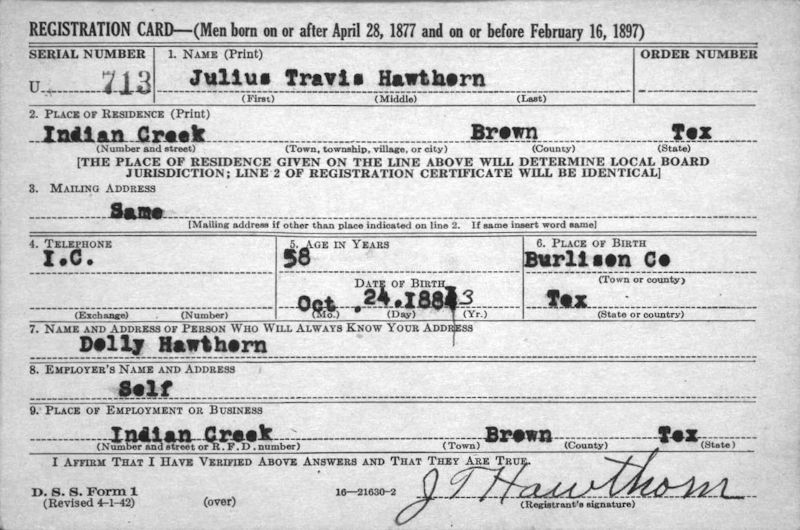 REGISTRATION CARD—(Men born on or after April 28, 1877 and on or before February 16, 1897)
SERIAL NUMBER 1. NAME (Print) ORDER NUMBER
U 713 Julius Travis Hawthorn
(First) (Middle) (Last)
2. PLACE OF RESIDENCE (Print)
Indian Creek Brown Tex
(Number and street) (Town, township, village, or city) (County) (State)
[THE PLACE OF RESIDENCE GIVEN ON THE LINE ABOVE WILL DETERMINE LOCAL BOARD
JURISDICTION; LINE 2 OF REGISTRATION CERTIFICATE WILL BE IDENTICAL]
3. MAILING ADDRESS
Same
[Mailing address if other than place indicated on line 2. If same insert word same]
4. TELEPHONE 5. AGE IN YEARS 6. PLACE OF BIRTH
I.C. 58 Burlison Co
(Town or county)
DATE OF BIRTH
Oct .24.1883 Tex
(Exchange) (Number) (Mo.) (Day) (Yr.) (State or country)
7. NAME AND ADDRESS OF PERSON WHO WILL ALWAYS KNOW YOUR ADDRESS
Dolly Hawthorn
8. EMPLOYER'S NAME AND ADDRESS
Self
9. PLACE OF EMPLOYMENT OR BUSINESS
Indian Creek Brown Tex
(Number and street or R. F. D. number) (Town) (County) (State)
I AFFIRM THAT I HAVE VERIFIED ABOVE ANSWERS AND THAT THEY ARE TRUE.
D. S. S. Form 1
(Revised 4-1-42) (over) 16—21630-2 J T Hawthorn
(Registrant's signature)